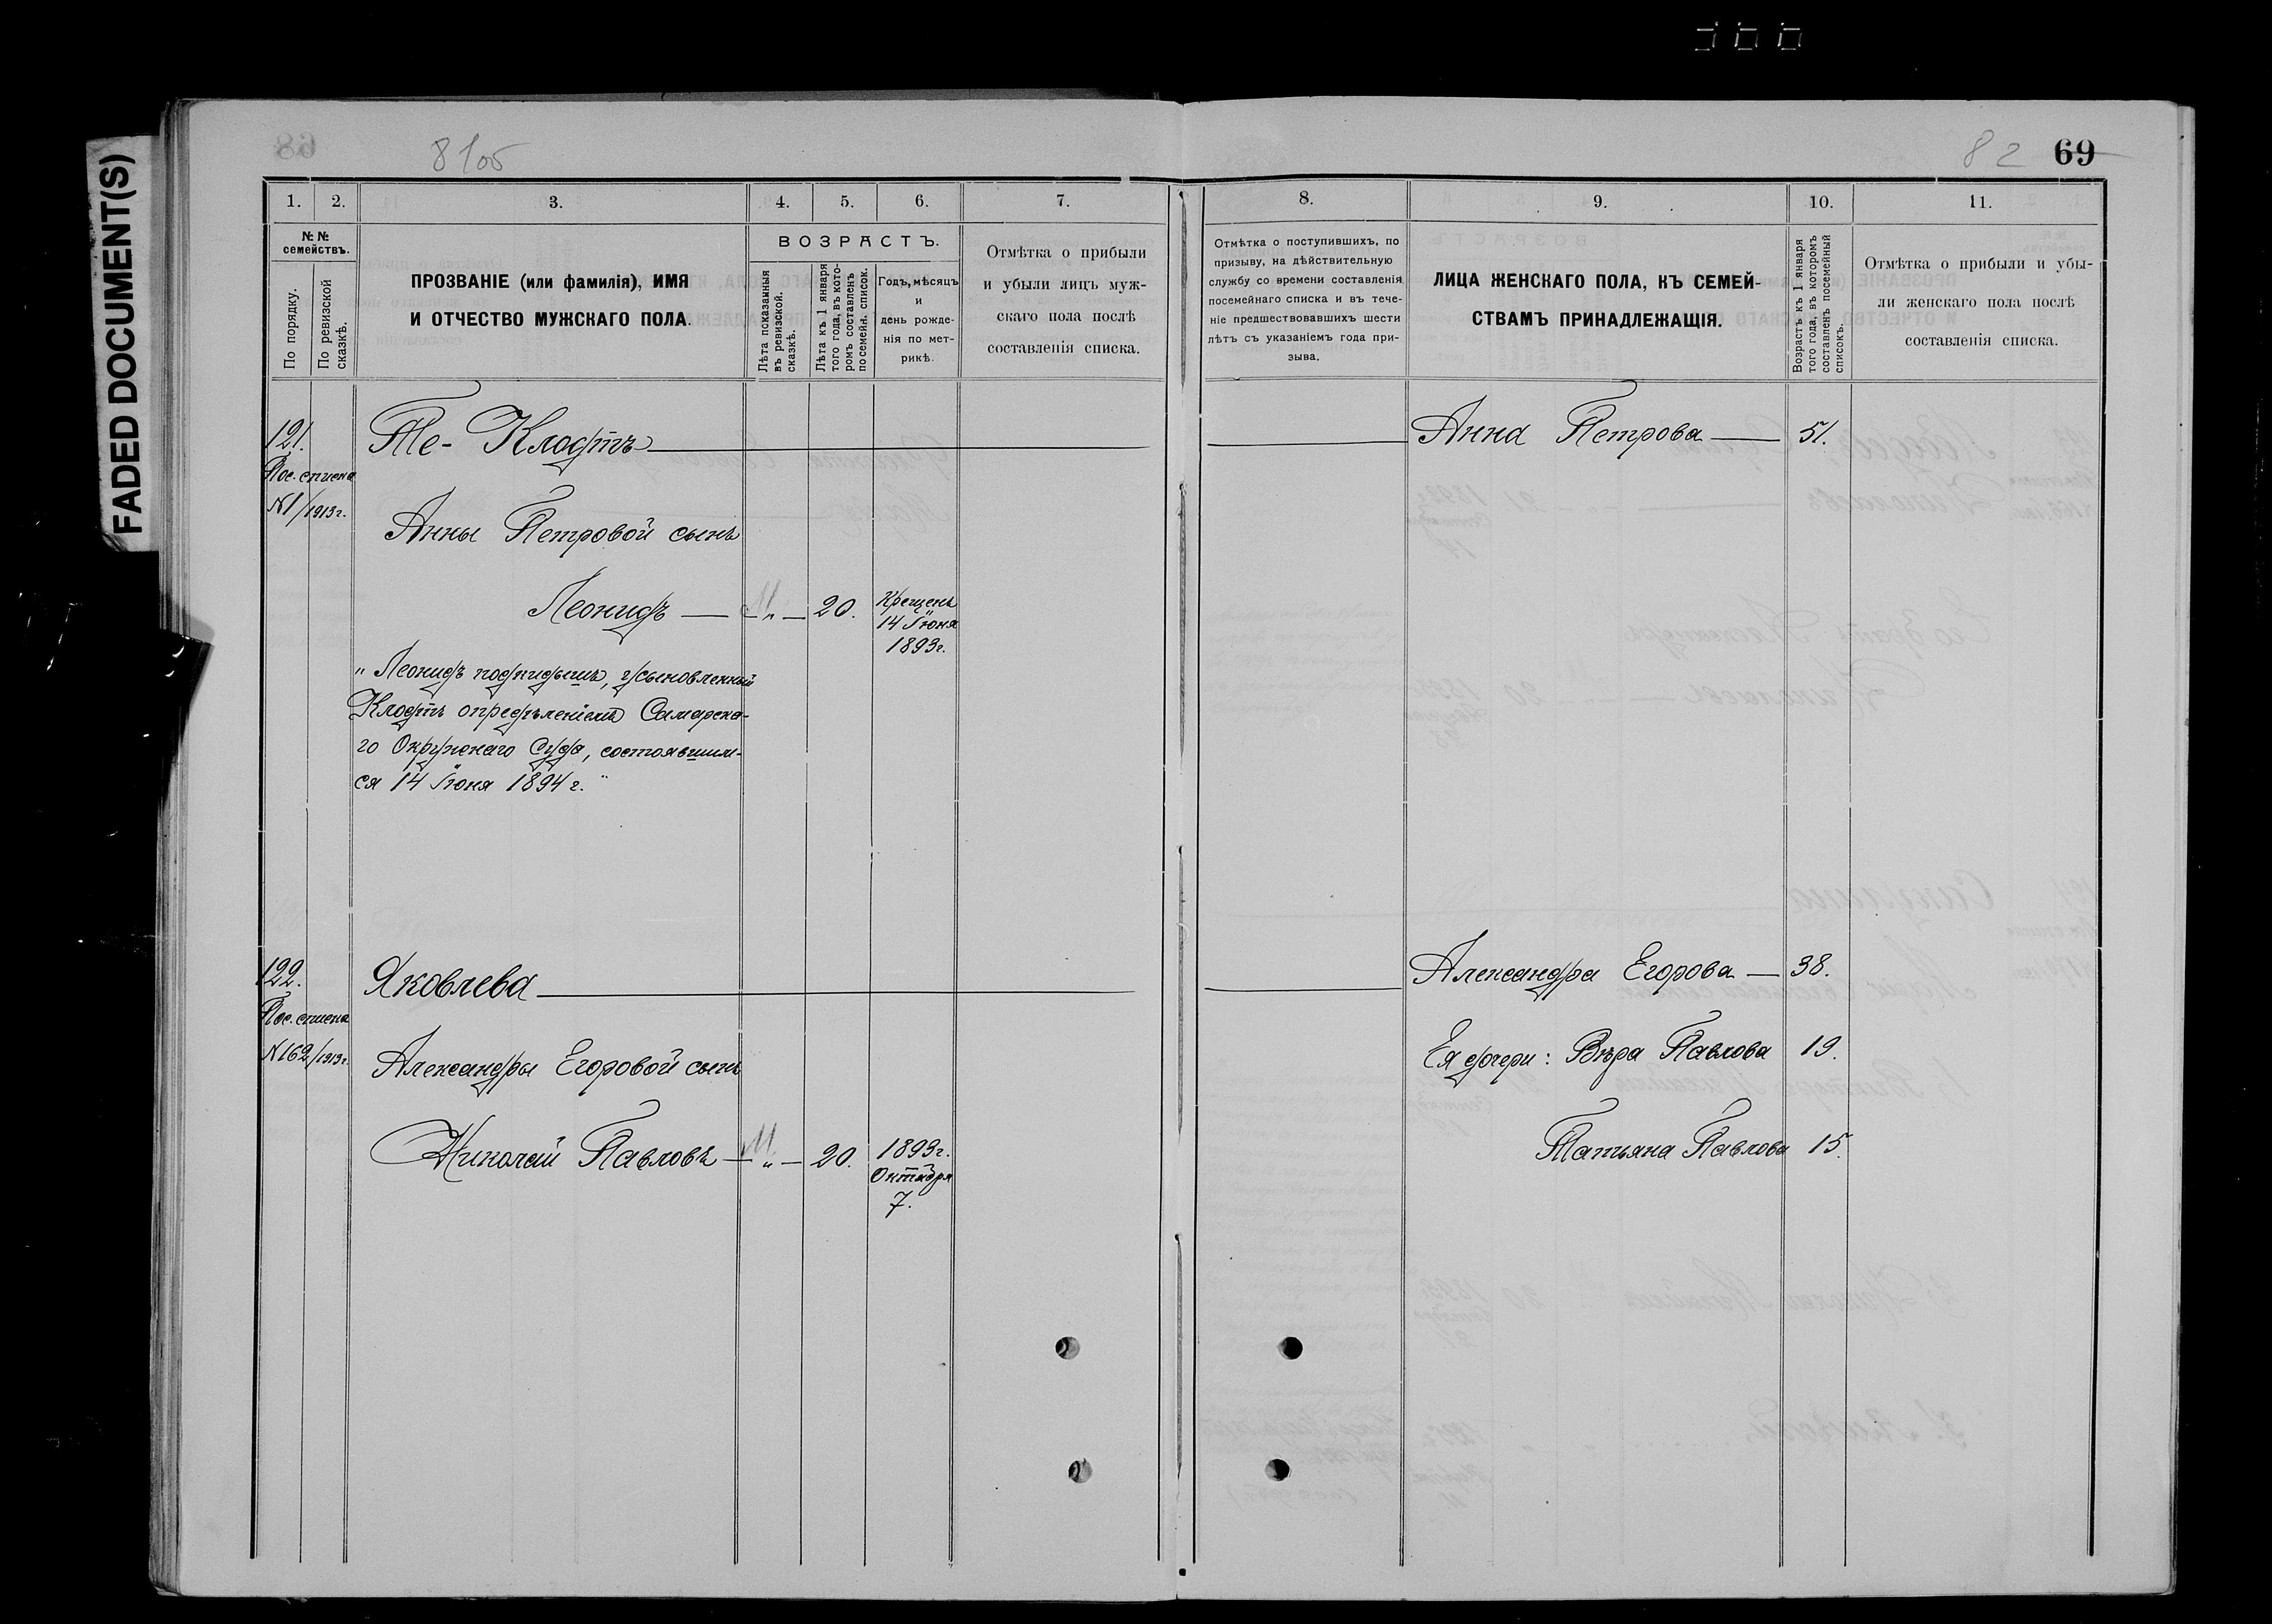 FADED DOCUMENT(S)
82 69
1. 2. 3. 4. 5. 6. 7.
№ №
семействъ.
По порядку.
По ревизской
сказкѣ.
ПРОЗВАНІЕ (или фамилія), ИМЯ
И ОТЧЕСТВО МУЖСКАГО ПОЛА.
ВОЗРАСТЪ.
Лѣта показанныя
въ ревизской
сказкѣ.
Лѣта къ 1 января
того года, въ кото-
ромъ составленъ
посемейн. список.
Годъ, мѣсяцъ
и
день рожде-
нія по мет-
рикѣ.
Отмѣтка о прибыли
и убыли лицъ муж-
скаго пола послѣ
составленія списка.
121.
Пос. списка
N1/1913г.
Те-Клодтъ
Анны Петровой сынъ
Леонидъ — „ — 20.
Крещенъ
14 Іюня
1893г.
„Леонидъ подкидышъ, усыновленный
Клодтъ опредѣленіемъ Самарска-
го Окружнаго Суда, состоявшим-
ся 14 Іюня 1894 г."
122.
Пос. списка
N162/1913г.
Яковлева
Александры Егоровой сынъ
Николай Павловъ — „ — 20.
1893г.
Октября
7.
8. 9. 10. 11.
Отмѣтка о поступившихъ, по
призыву, на дѣйствительную
службу со времени составленія
посемейнаго списка и въ тече-
ніе предшествовавшихъ шести
лѣтъ съ указаніемъ года при-
зыва.
ЛИЦА ЖЕНСКАГО ПОЛА, КЪ СЕМЕЙ-
СТВАМЪ ПРИНАДЛЕЖАЩІЯ.
Возрастъ къ 1 января
того года, въ которомъ
составленъ посемейный
списокъ.
Отмѣтка о прибыли и убы-
ли женскаго пола послѣ
составленія списка.
Анна Петрова — 51.
Александра Егорова — 38.
Ея дочери: Вѣра Павлова 19.
Татьяна Павлова 15.